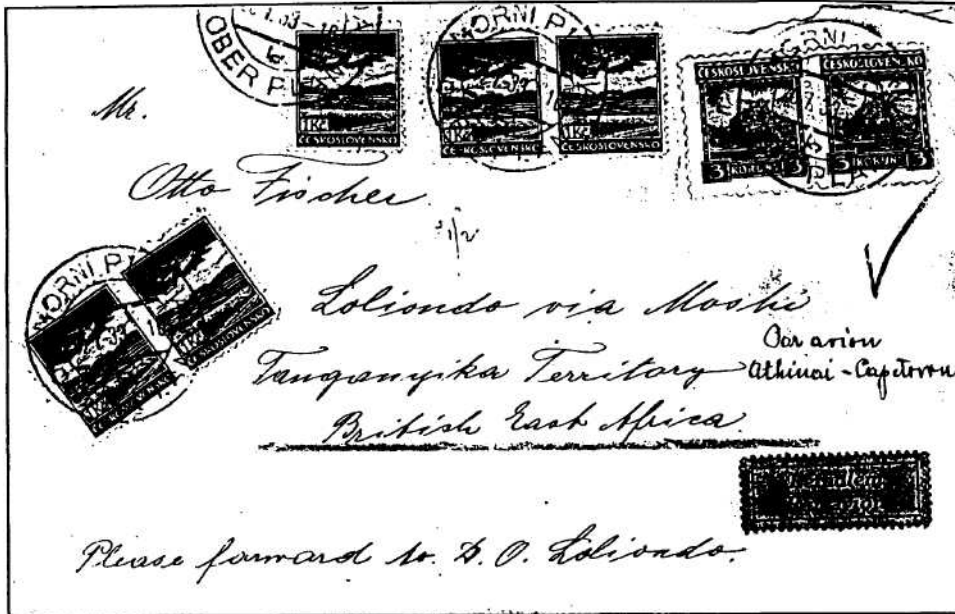 OBER PLAN
HORNI P
1 Kč
ČESKOSLOVENSKO
1 Kč
ČESKOSLOVENSKO
1 Kč
ČESKOSLOVENSKO
ČESKOSLOVENSKO
3 KORUNY 3
ČESKOSLOVENSKO
3 KORUNY 3
Mr.
Otto Fischer
1/2
HORNI P
1 Kč
ČESKOSLOVENSKO
1 Kč
ČESKOSLOVENSKO
Loliondo via Moshi
Tanganyika Territory
British East Africa.
Par avion
Athinai - Capetown
Please forward to. D. O. Loliondo.